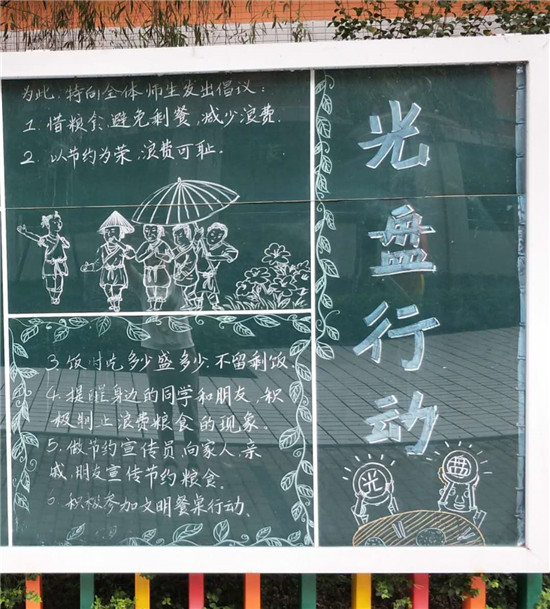 为此,特向全体师生发出倡议:
1. 惜粮食、避免剩餐、减少浪费.
2. 以节约为荣、浪费可耻.
3. 饭时吃多少盛多少,不留剩饭.
4. 提醒身边的同学和朋友,积
极制止浪费粮食的现象.
5. 做节约宣传员向家人、亲
戚、朋友宣传节约粮食.
积极参加文明餐桌行动.
光盘行动
光